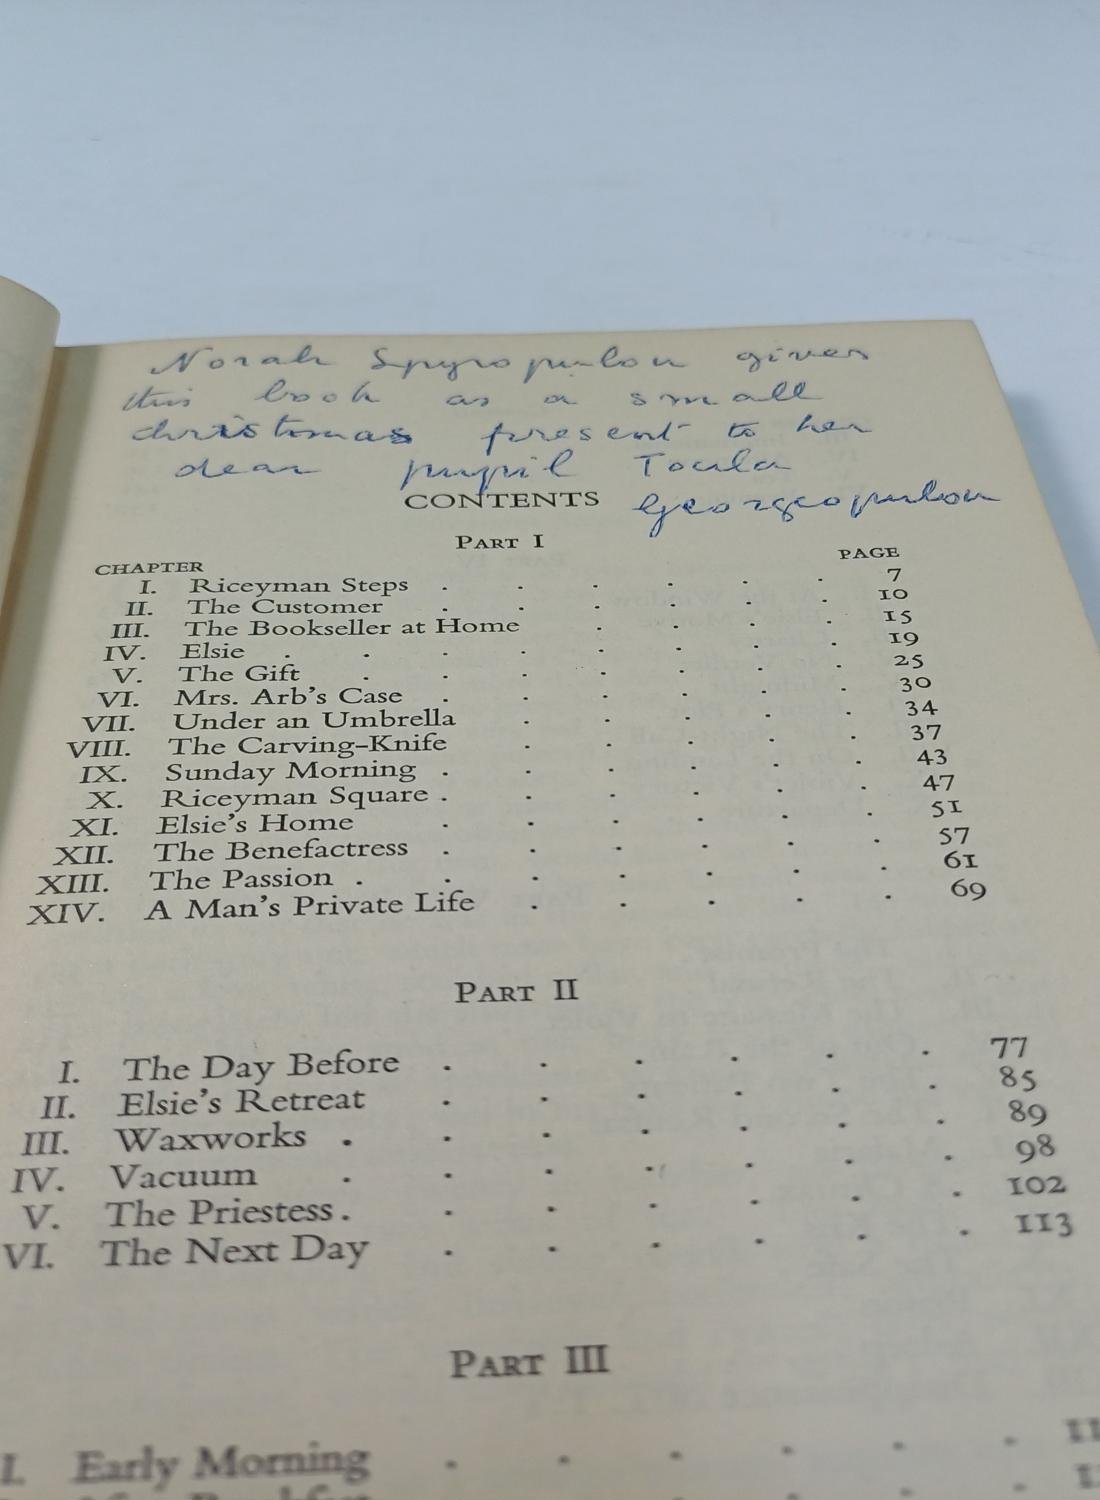 Norah Spyropulou gives
this book as a small
christmas present to her
dear pupil Toula
Georgeopulou
CONTENTS
PART I
CHAPTER PAGE
I. Riceyman Steps . . . . . . 7
II. The Customer . . . . . . 10
III. The Bookseller at Home . . . . 15
IV. Elsie . . . . . . . . 19
V. The Gift . . . . . . . 25
VI. Mrs. Arb's Case . . . . . . 30
VII. Under an Umbrella . . . . . 34
VIII. The Carving-Knife . . . . . 37
IX. Sunday Morning . . . . . . 43
X. Riceyman Square . . . . . . 47
XI. Elsie's Home . . . . . . 51
XII. The Benefactress . . . . . . 57
XIII. The Passion . . . . . . . 61
XIV. A Man's Private Life . . . . . 69
PART II
I. The Day Before . . . . . . 77
II. Elsie's Retreat . . . . . . 85
III. Waxworks . . . . . . . 89
IV. Vacuum . . . . . . . 98
V. The Priestess . . . . . . . 102
VI. The Next Day . . . . . . 113
PART III
I. Early Morning . . . . . . 11